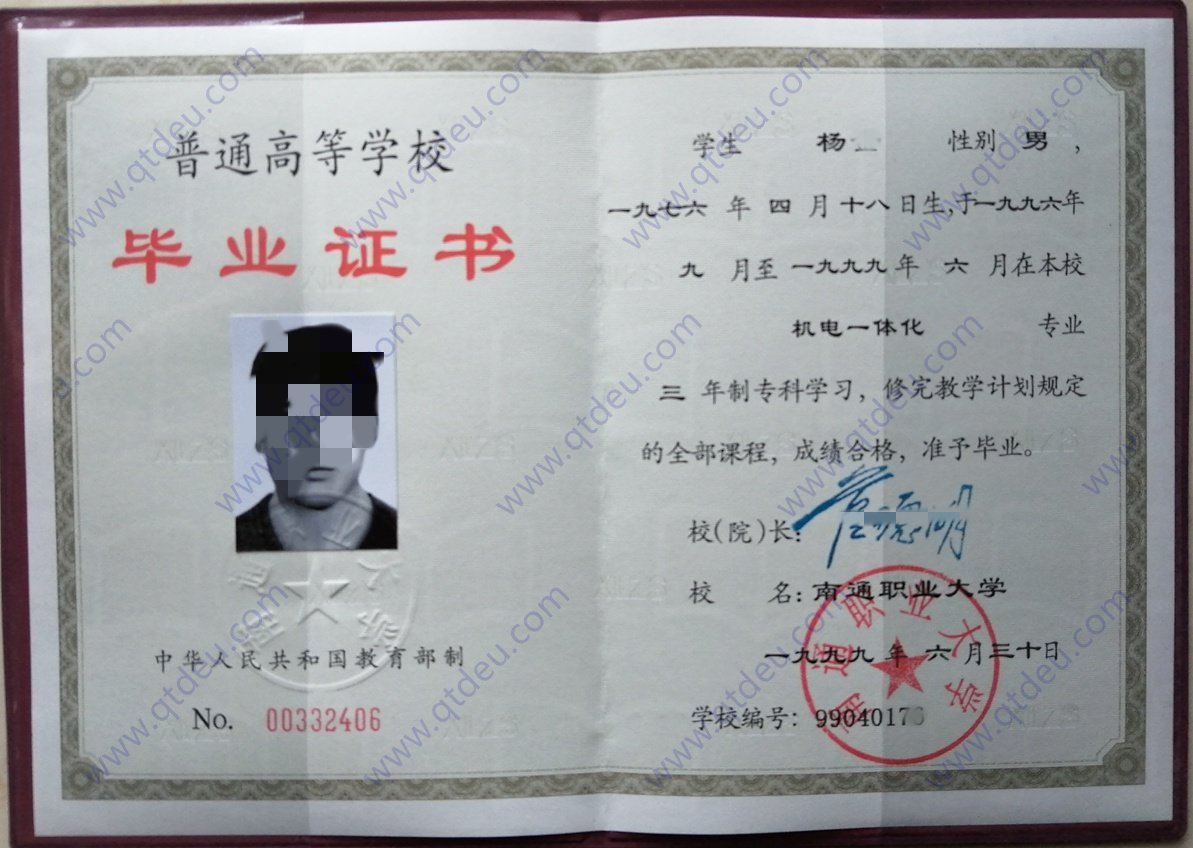 普通高等学校
毕业证书
中华人民共和国教育部制
No. 00332406
学生 杨 性别 男，
一九七六 年 四 月 十八 日生，于一九九六年
九 月至 一九九九 年 六 月在本校
机电一体化 专业
三 年制专科学习，修完教学计划规定
的全部课程，成绩合格，准予毕业。
校（院）长：
校 名：南通职业大学
一九九九 年 六 月三十日
学校编号：990401
南通职业大学
www.qtdeu.com